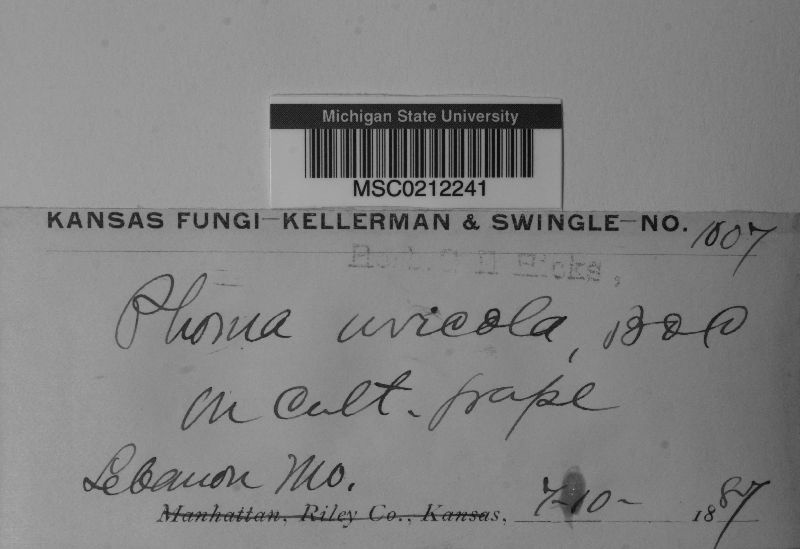 Michigan State University
MSC0212241
KANSAS FUNGI—KELLERMAN & SWINGLE—NO. 1007
Herb. G H Hicks,
Phoma uvicola, B & C
on cult. grape
Lebanon Mo.
Manhattan, Riley Co., Kansas, 7-10- 1887